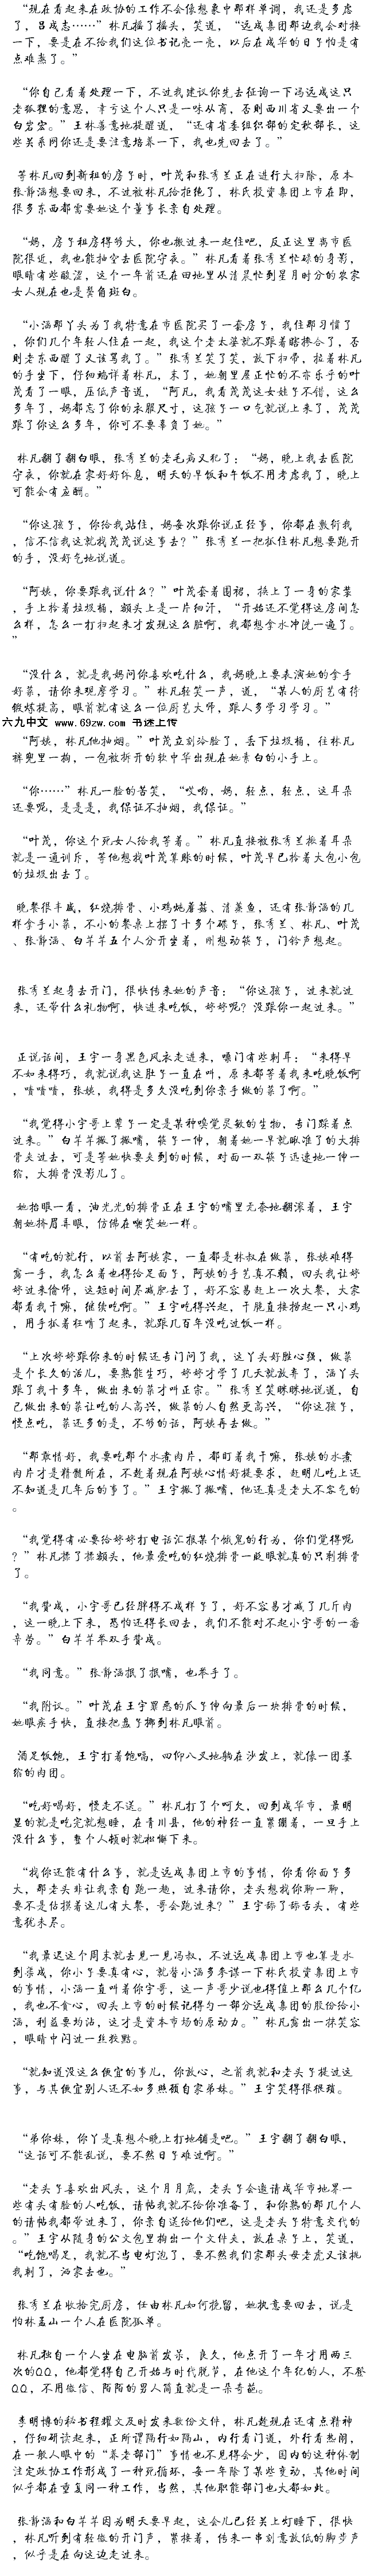 “现在看起来在政协的工作不会像想象中那样单调，我还是多虑
了，吕成志……”林凡摇了摇头，笑道，“远成集团那边我会对接
一下，要是在不给我们这位书记亮一亮，以后在成华的日子怕是有
点难熬了。”
“你自己看着处理一下，不过我建议你先去征询一下冯远成这只
老狐狸的意思，幸亏这个人只是一味从商，否则西川省又要出一个
白宏宏。”王林善意地提醒道，“还有省委组织部的定秋部长，这
些关系网你还是要注意培养一下，我也先回去了。”
等林凡回到新租的房子时，叶茂和张秀兰正在进行大扫除，原本
张静涵想要回来，不过被林凡给拒绝了，林氏投资集团上市在即，
很多东西都需要她这个董事长亲自处理。
“妈，房子租房得够大，你也搬过来一起住吧，反正这里离市医
院很近，我也能抽空去医院守夜。”林凡看着张秀兰忙碌的身影，
眼睛有些酸涩，这个一年前还在田地里从清晨忙到星月时分的农家
女人现在也是鬓角斑白。
“小涵那丫头为了我特意在市医院买了一套房子，我住那习惯了
，你们几个年轻人住在一起，我这个老太婆就不跟着瞎掺合了，否
则老东西醒了又该骂我了。”张秀兰笑了笑，放下扫帚，拉着林凡
的手坐下，仔细端详着林凡，末了，她朝里屋正忙的不亦乐乎的叶
茂看了一眼，压低声音道，“阿凡，我看茂茂这女娃子不错，这么
多年了，妈都忘了你的衣服尺寸，这孩子一口气就说上来了，茂茂
跟了你这么多年，你可不要辜负了她。”
林凡翻了翻白眼，张秀兰的老毛病又犯了：“妈，晚上我去医院
守夜，你就在家好好休息，明天的早饭和午饭不用考虑我了，晚上
可能会有应酬。”
“你这孩子，你给我站住，妈每次跟你说正经事，你都在敷衍我
，信不信我这就找茂茂说这事去？”张秀兰一把抓住林凡想要跑开
的手，没好气地说道。
“阿姨，你要跟我说什么？”叶茂套着围裙，换上了一身的家装
，手上拎着垃圾桶，额头上是一片细汗，“开始还不觉得这房间怎
么样，怎么一打扫起来才发现这么脏啊，我都想拿水冲洗一遍了。
”
“没什么，就是我妈问你喜欢吃什么，我妈晚上要表演她的拿手
好菜，请你来观摩学习。”林凡轻笑一声，道，“某人的厨艺有待
锻炼提高，眼前就有这么一位厨艺大师，跟人多学习学习。”
六九中文 www.69zw.com 书迷上传
“阿姨，林凡他抽烟。”叶茂立刻冷脸了，丢下垃圾桶，往林凡
裤兜里一掏，一包被拆开的软中华出现在她青白的小手上。
“你……”林凡一脸的苦笑，“哎哟，妈，轻点，轻点，这耳朵
还要呢，是是是，我保证不抽烟，我保证。”
“叶茂，你这个死女人给我等着。”林凡直接被张秀兰揪着耳朵
就是一通训斥，等他想找叶茂算账的时候，叶茂早已拎着大包小包
的垃圾出去了。
晚餐很丰盛，红烧排骨、小鸡炖蘑菇、清蒸鱼，还有张静涵的几
样拿手小菜，不小的餐桌上摆了十多个碟子，张秀兰、林凡、叶茂
、张静涵、白芊芊五个人分开坐着，刚想动筷子，门铃声想起。
张秀兰起身去开门，很快传来她的声音：“你这孩子，过来就过
来，还带什么礼物啊，快进来吃饭，婷婷呢？没跟你一起过来。”
正说话间，王宇一身黑色风衣走进来，嗓门有些刺耳：“来得早
不如来得巧，我就说我这肚子一直在叫，原来都等着我来吃晚饭啊
，啧啧啧，张姨，我得是多久没吃到你亲手做的菜了啊。”
“我觉得小宇哥上辈子一定是某种嗅觉灵敏的生物，专门踩着点
过来。”白芊芊撇了撇嘴，筷子一伸，朝着她一早就瞅准了的大排
骨夹过去，可是等她快要夹到的时候，对面一双筷子迅速地一伸一
缩，大排骨没影儿了。
她抬眼一看，油光光的排骨正在王宇的嘴里无奈地翻滚着，王宇
朝她挤眉弄眼，仿佛在嘲笑她一样。
“有吃的就行，以前去阿姨家，一直都是林叔在做菜，张姨难得
露一手，我怎么着也得给足面子，阿姨的手艺真不赖，回头我让婷
婷过来偷师，这短时间尽减肥去了，好不容易赶上一次大餐，大家
都看我干嘛，继续吃啊。”王宇吃得兴起，干脆直接捞起一只小鸡
，用手扒着狂啃了起来，就跟几百年没吃过饭一样。
“上次婷婷跟你来的时候还专门问了我，这丫头好胜心强，做菜
是个长久的活儿，要熟能生巧，婷婷才学了几天就放弃了，涵丫头
跟了我十多年，做出来的菜才叫正宗。”张秀兰笑眯眯地说道，自
己做出来的菜让吃的人高兴，做菜的人自然更高兴，“你这孩子，
慢点吃，菜还多的是，不够的话，阿姨再去做。”
“那敢情好，我要吃那个水煮肉片，都盯着我干嘛，张姨的水煮
肉片才是精髓所在，不趁着现在阿姨心情好提要求，赶明儿吃上还
不知道是几年后的事了。”王宇撇了撇嘴，他还真是老大不客气的
。
“我觉得有必要给婷婷打电话汇报某个饿鬼的行为，你们觉得呢
？”林凡揉了揉额头，他最爱吃的红烧排骨一眨眼就真的只剩排骨
了。
“我赞成，小宇哥已经胖得不成样子了，好不容易才减了几斤肉
，这一晚上下来，恐怕还得长回去，我们不能对不起小宇哥的一番
辛劳。”白芊芊举双手赞成。
“我同意。”张静涵抿了抿嘴，也举手了。
“我附议。”叶茂在王宇罪恶的爪子伸向最后一块排骨的时候，
她眼疾手快，直接把盘子挪到林凡眼前。
酒足饭饱，王宇打着饱嗝，四仰八叉地躺在沙发上，就像一团萎
缩的肉团。
“吃好喝好，慢走不送。”林凡打了个呵欠，回到成华市，最明
显的就是吃完就想睡，在青川县，他的神经一直紧绷着，一旦手上
没什么事，整个人顿时就松懈下来。
“找你还能有什么事，就是远成集团上市的事情，你看你面子多
大，那老头非让我亲自跑一趟，过来请你，老头想找你聊一聊，
要不是估摸着这儿有大餐，哥会跑过来？”王宇舔了舔舌头，有些
意犹未尽。
“我最迟这个周末就去见一见冯叔，不过远成集团上市也算是水
到渠成，你小子要真有心，就替小涵多参谋一下林氏投资集团上市
的事情，小涵一直叫着你宇哥，这一声哥少说也得值上那么几个亿
，我也不贪心，回头上市的时候记得匀一部分远成集团的股份给小
涵，利益要均沾，这才是资本市场的原动力。”林凡露出一抹笑容
，眼睛中闪过一丝狡黠。
“就知道没这么便宜的事儿，你放心，之前我就和老头子提过这
事，与其便宜别人还不如多照顾自家弟妹。”王宇笑得很猥琐。
“弟你妹，你丫是真想今晚上打地铺是吧。”王宇翻了翻白眼，
“这话可不能乱说，要不然日子难过啊。”
“老头子喜欢出风头，这个月月底，老头子会邀请成华市地界一
些有头有脸的人吃饭，请帖我就不给你准备了，和你熟的那几个人
的请帖我都带过来了，你亲自送给他们吧，这是老头子特意交代的
。”王宇从随身的公文包里掏出一个文件夹，放在桌子上，笑道，
“吃饱喝足，我就不当电灯泡了，要不然我们家那头母老虎又该挑
我刺了，洒家去也。”
张秀兰在收拾完厨房，任由林凡如何挽留，她执意要回去，说是
怕林孟山一个人在医院孤单。
林凡独自一个人坐在电脑前发呆，良久，他点开了一年才用两三
次的QQ，他都觉得自己开始与时代脱节，在他这个年纪的人，不登
QQ，不用微信、陌陌的男人简直就是一朵奇葩。
李明博的秘书程耀文及时发来数份文件，林凡趁现在还有点精神
，仔细研读起来，正所谓隔行如隔山，内行看门道，外行看热闹，
在一般人眼中的“养老部门”事情也不见得会少，国内的这种体制
注定政协工作形成了一种死循环，每一年除了某些变动，其他时间
似乎都在重复同一种工作，当然，其他职能部门也大都如此。
张静涵和白芊芊因为明天要早起，这会儿已经关上灯睡下，很快
，林凡听到有轻微的开门声，紧接着，传来一串刻意放低的脚步声
，似乎是在向这边走过来。